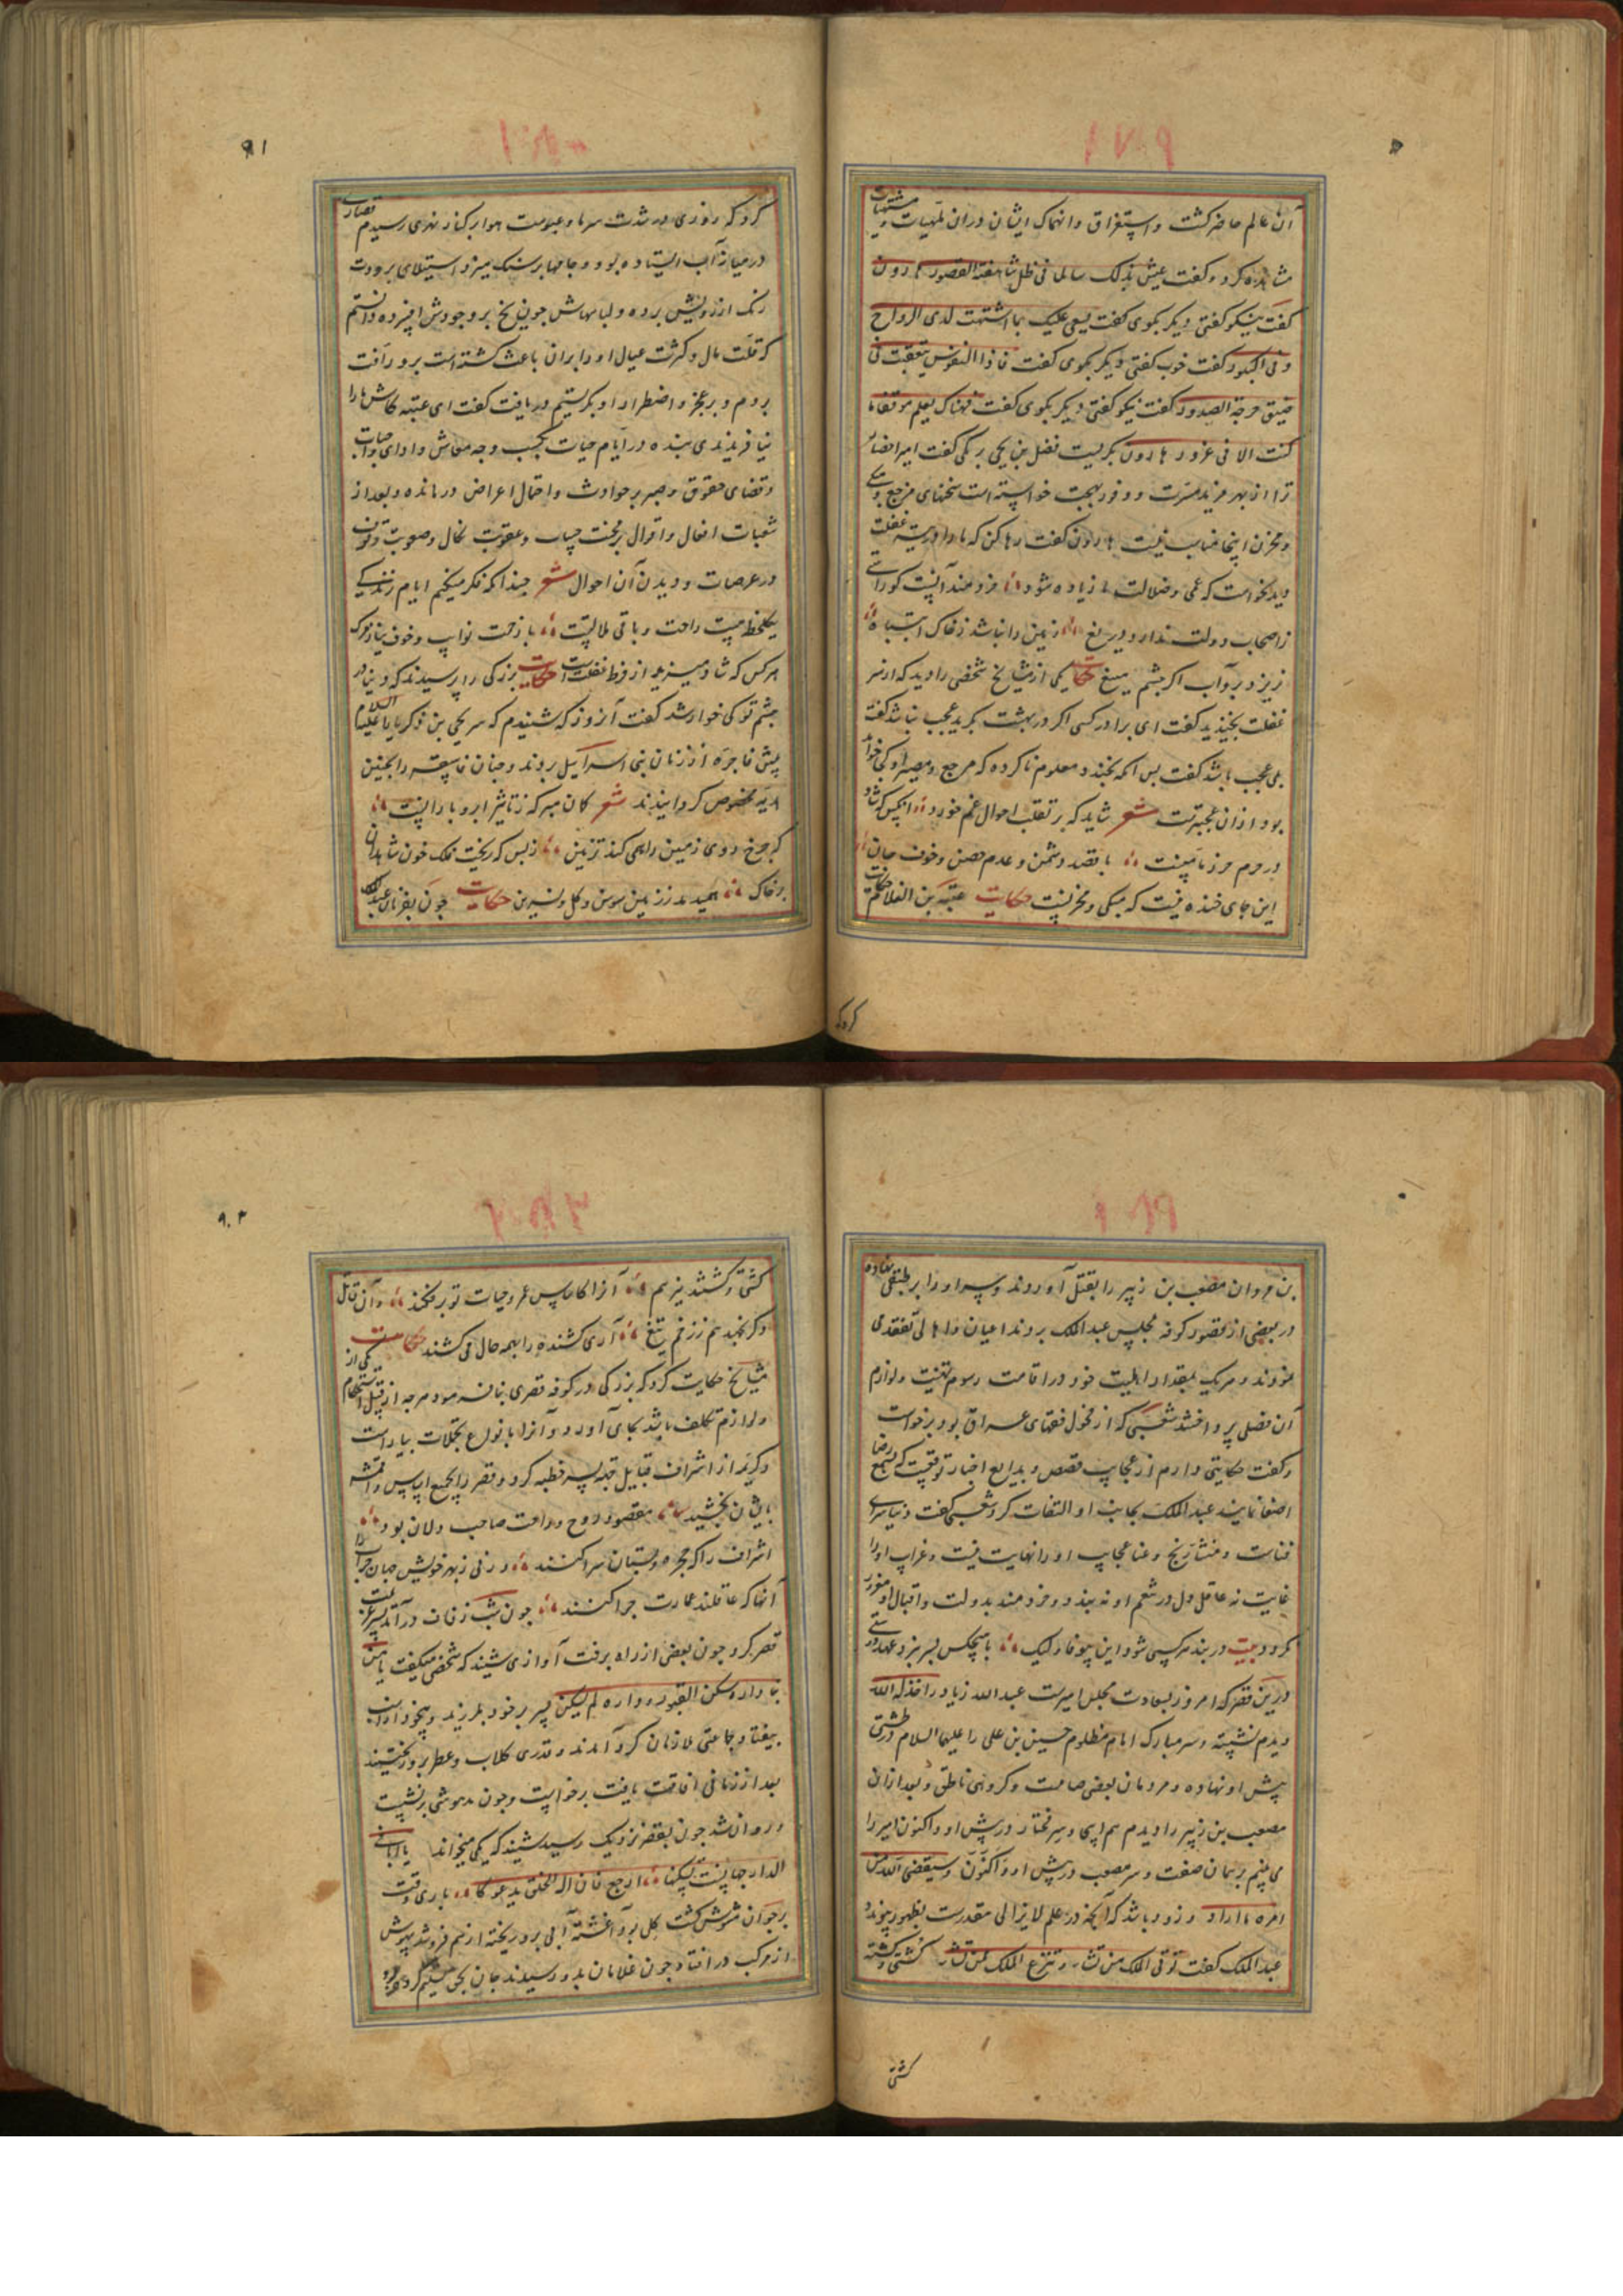 آن عالم حاضر کشت و استغراق و انهماک ایشان در ان ملهیات و مشتهیات
مشاهده کرد و کفت عیش بذلک سالما فی ظل شاهقة القصور هارون
کفت نیکو کفتی دیکر بکوی کفت یسعی علیک بما اشتهیت لدی الرواح
و فی البکور کفت خوب کفتی دیکر بکوی کفت فاذا النفوس تقعقعت فی
ضیق حرجة الصدور کفت نیکو کفتی دیکر بکوی کفت فهناک یعلم موقفا ما
کنت الا فی غرور هارون بکریست فضل بن یحیی برمکی کفت امیر احضار
ترا از بهر مزید مسرت و وفور بهجت خواسته است سخنهای مزعج
و محزن اینجا مناسب نیست هارون کفت رها کن که ما را در
دید نخواست که عمی و ضلالت ما زیاده شود خردمند آنست کو را
ز اصحاب دولت ندارد دریغ زمین را نباشد ز خاک اشتباه
نریزد برو آب اکر چشم میغ حکایت یکی از مشایخ شخصی را دید که از سر
غفلت بخندید کفت ای برادر کسی اکر در بهشت بکرید عجب نباشد کفت
بلی عجب باشد کفت بس آنکه بخندد و معلوم ناکرده که مرجع و مصیر او کجا خواهد
بود از ان عجبترست شعر شاید که بر تقلب احوال غم خورد انکس که شاد
در حرم حرز مامنست با قصد دشمن و عدم حصن و خوف جان
این جای خنده نیست که مبکی و محزنست حکایت عتبه بن الغلام حکایت
کرد که
کرد که روزی در شدت سرما و عبوست هوا بر کنار نهری رسیدم قصاری
در میان آب ایستاده بود و جامها بر سنک میزد و استیلای برودت
رنک از رویش برده و لباسهاش چون یخ بر وجودش افسرده دانستم
که قلت مال و کثرت عیال او را بران باعث کشته است برو رافت
بردم و بر عجز و اضطرار او بکریستم دریافت کفت ای عتبه کاش ما را
نیافریدندی بنده در ایام حیات بکسب وجه معاش و ادای واجبات
و قضای حقوق و صبر بر حوادث و احتمال اعراض درمانده و بعد از
تبعات افعال و اقوال بر محنت حساب و عقوبت نکال و صعوبت وقوف
در عرصات و دیدن آن احوال شعر چندانکه فکر میکنم ایام زندکی
یکلحظه نیست راحت و باقی ملالتست با زحمت نوایب و خوف نیاز و مرک
هر کس که شاد میزید از فرط غفلتست حکایت بزرکی را پرسیدند که دنیا در
چشم تو کی خوار شد کفت آنروز که شنیدم که سر یحیی بن زکریا علیهما السلام
پیش فاجره از زنان بنی اسرائیل بردند و چنان فاسقه را بچنین
هدیه مخصوص کردانیدند شعر کان مبر که ز تاثیر ابر و بارانست
که چرخ روی زمین را همی کند تزیین ز بس که ریخت فلک خون شاهدان
بر خاک همی دمد ز زمین سوسن و کل و نسرین حکایت چون بفرمان عبدالملک
بن مروان مصعب بن زبیر را بقتل آوردند و سر او را بر طبقی نهاده
در بعضی از قصور کوفه بمجلس عبدالملک بردند اعیان و اهالی تفقدی
نمودند و هر یک بمقدار اهلیت خود در اقامت رسوم تهنیت و لوازم
آن فصلی پرداختند شعبی که از فحول فقهای عراق بود برخواست
و کفت حکایتی دارم از عجایب قصص و بدایع اخبار توقعست که بسمع رضا
اصغا نمایند عبدالملک بجانب او التفات کرد شعبی کفت دنیا سرای
فناست و منشا رنج و عنا عجایب او را نهایت نیست و غرایب او را
غایت نه عاقل دل در نعیم او نه بندد و خردمند بدولت و اقبال او مغرور
نکردد بیت در بند هر کسی شود این بیوفا ولیک با هیچکس بسر نبرد عهد دوستی
درین قصر که امروز بسعادت مجلس امیرست عبد الله زیاد را خذله الله
دیدم نشسته و سر مبارک امام مظلوم حسین بن علی را علیهما السلام در طشتی
پیش او نهاده و مردمان بعضی صامت و کروهی ناطق و بعد از ان
مصعب بن زبیر را دیدم هم اینجا و سر مختار در پیش او و اکنون امیر را
می بینم بر همان صفت و سر مصعب در پیش او و اکنون و سیقضی الله من
امره ما اراد و زود باشد که آنچه در علم لایزالی مقدرست بظهور پیوندد
عبدالملک کفت تؤتی الملک من تشاء و تنزع الملک ممن تشاء کشتی و کشته
کشتی
کشتی و کشتند نیز هم آنرا کاساس عمر و حیات تو برفکند و آن قاتل
دکر نجهد هم ز زخم تیغ آری کشنده را بهمه حال می کشند حکایت یکی از
مشایخ حکایت کرد که بزرکی در کوفه قصری بنا نهاد و هر چه از قبیل استحکام
و لوازم تکلف باشد بجای آورد و آنرا بانواع تجملات بیاراست
و کریمه از اشراف قبایل قبله پسر خطبه کرد و قصر را بجمیع اساس و امتعه
بایشان بخشید مقصود روح و راحت صاحب دلان بود
اشراف را که حجره و بستان سرا کنند ورنی ز بهر خویش جهان خراب را
آنها که عاقلند عمارت چرا کنند چون شب زفاف درآمد پسر عزیمت
قصر کرد چون بعضی از راه برفت آوازی شنید که شخصی میکفت یا من
بنا داره سکن القبور و داره لم یسکن پسر بر خود بلرزید و بیخود از اسب
بیفتاد جماعتی ملازمان کرد آمدند و قدری کلاب و عطر برو ریختند
بعد از زمانی افاقت یافت برخواست و چون مدهوشی برنشست
و روان شد چون بقصر نزدیک رسید شنید که یکی میخواند یا بانی
الدار جانبت سکنها ارجع فان اله الخلق یدعوکا باری وقت
بر جوان مشوش کشت کل برو آغشته آبی برو ریخته از هم فرو شد بیهوش
از مرکب در افتاد چون غلامان بدو رسیدند جان بحق تسلیم کرده بود